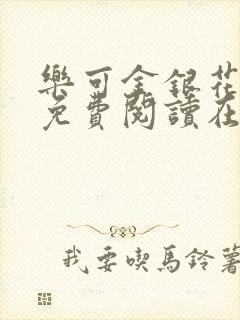 樂可金銀花
免費閱讀在
我要喫馬鈴薯